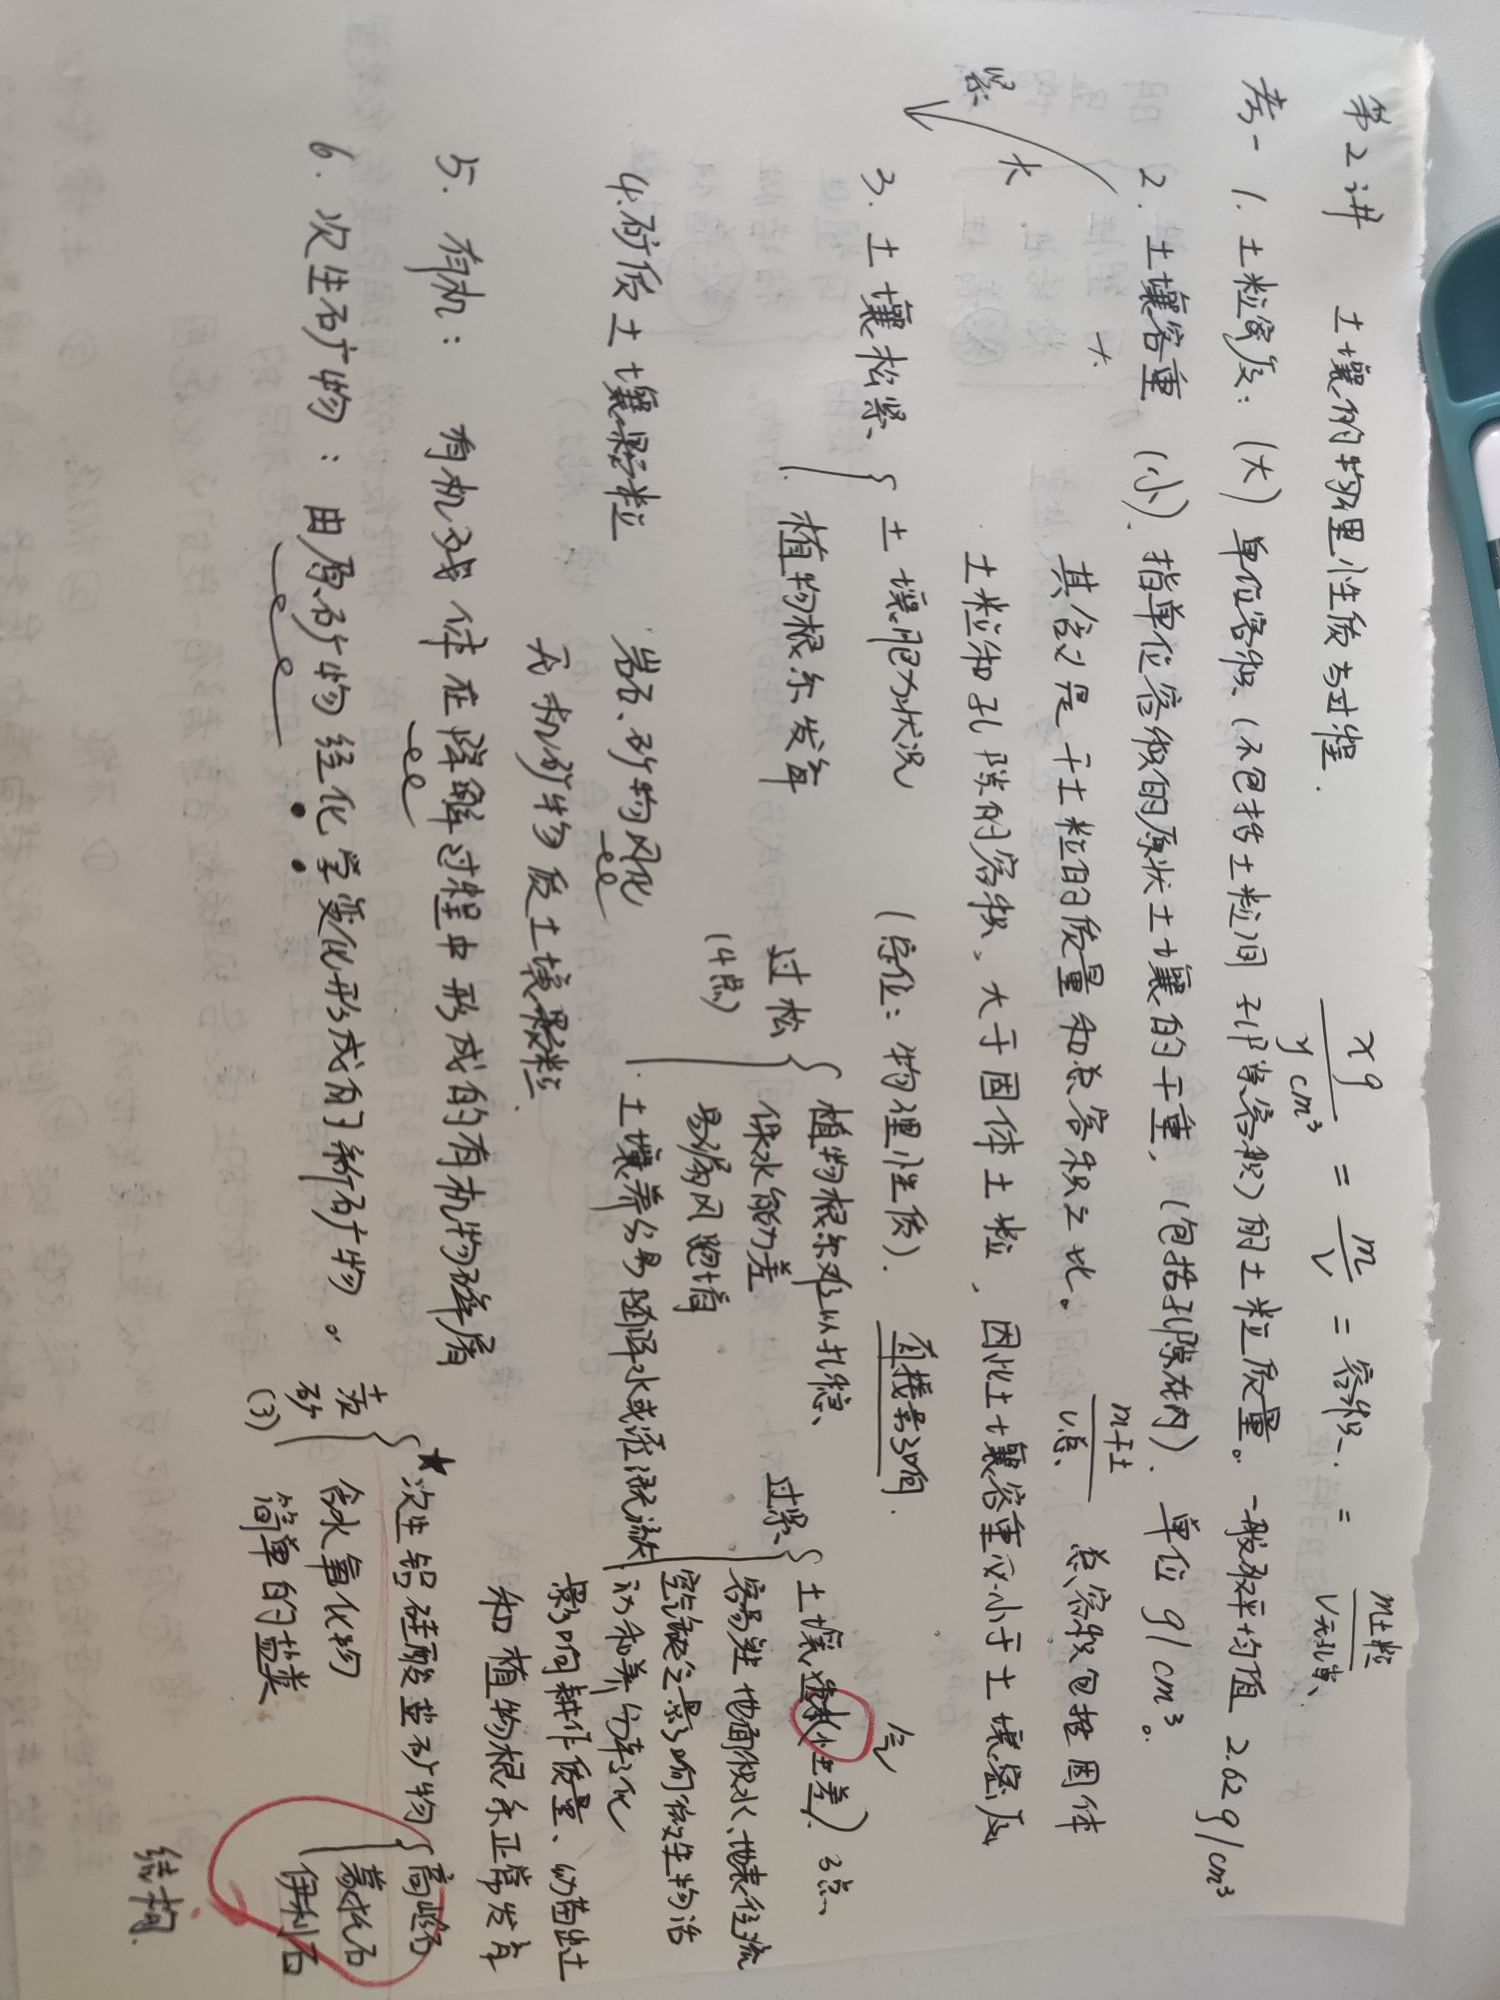 第2讲 土壤的物理性质与过程.
xg/ycm³ = m/V = 容积. = m土粒/V无孔隙
考一 1. 土粒密度:(大)单位容积(不包括土粒间孔隙容积)的土粒质量。一般取平均值 2.62g/cm³
2. 土壤容重(小). 指单位容积的原状土壤的干重,(包括孔隙在内). 单位 g/cm³。
大
其含义是干土粒的质量和总容积之比。 m干土/V总 总容积包括固体
土粒和孔隙的容积、大于固体土粒、因此土壤容重应小于土壤密度
紧 大
3. 土壤松紧 { 土壤肥力状况 (定位:物理性质). 直接影响.
植物根系发育
过松(4点) { 植物根系难以扎稳、
保水能力差
易漏风跑墒
土壤养分易随降水或径流流失
过紧 { 土壤透水性差) 3点、
气
容易产生地面积水、地表径流
空气缺乏影响微生物活
动和养分转化
影响耕作质量、幼苗出土
和植物根系正常发育
4. 矿质土壤颗粒 岩石、矿物风化
无机矿物质土壤颗粒.
5. 有机: 有机残体在降解过程中形成的有机物碎屑
6. 次生矿物:由原矿物经化学变化形成的新矿物。
土壤矿(3) { ★次生铝硅酸盐矿物 { 高岭石
蒙托石
伊利石
含水氧化物
简单的盐类
结构.